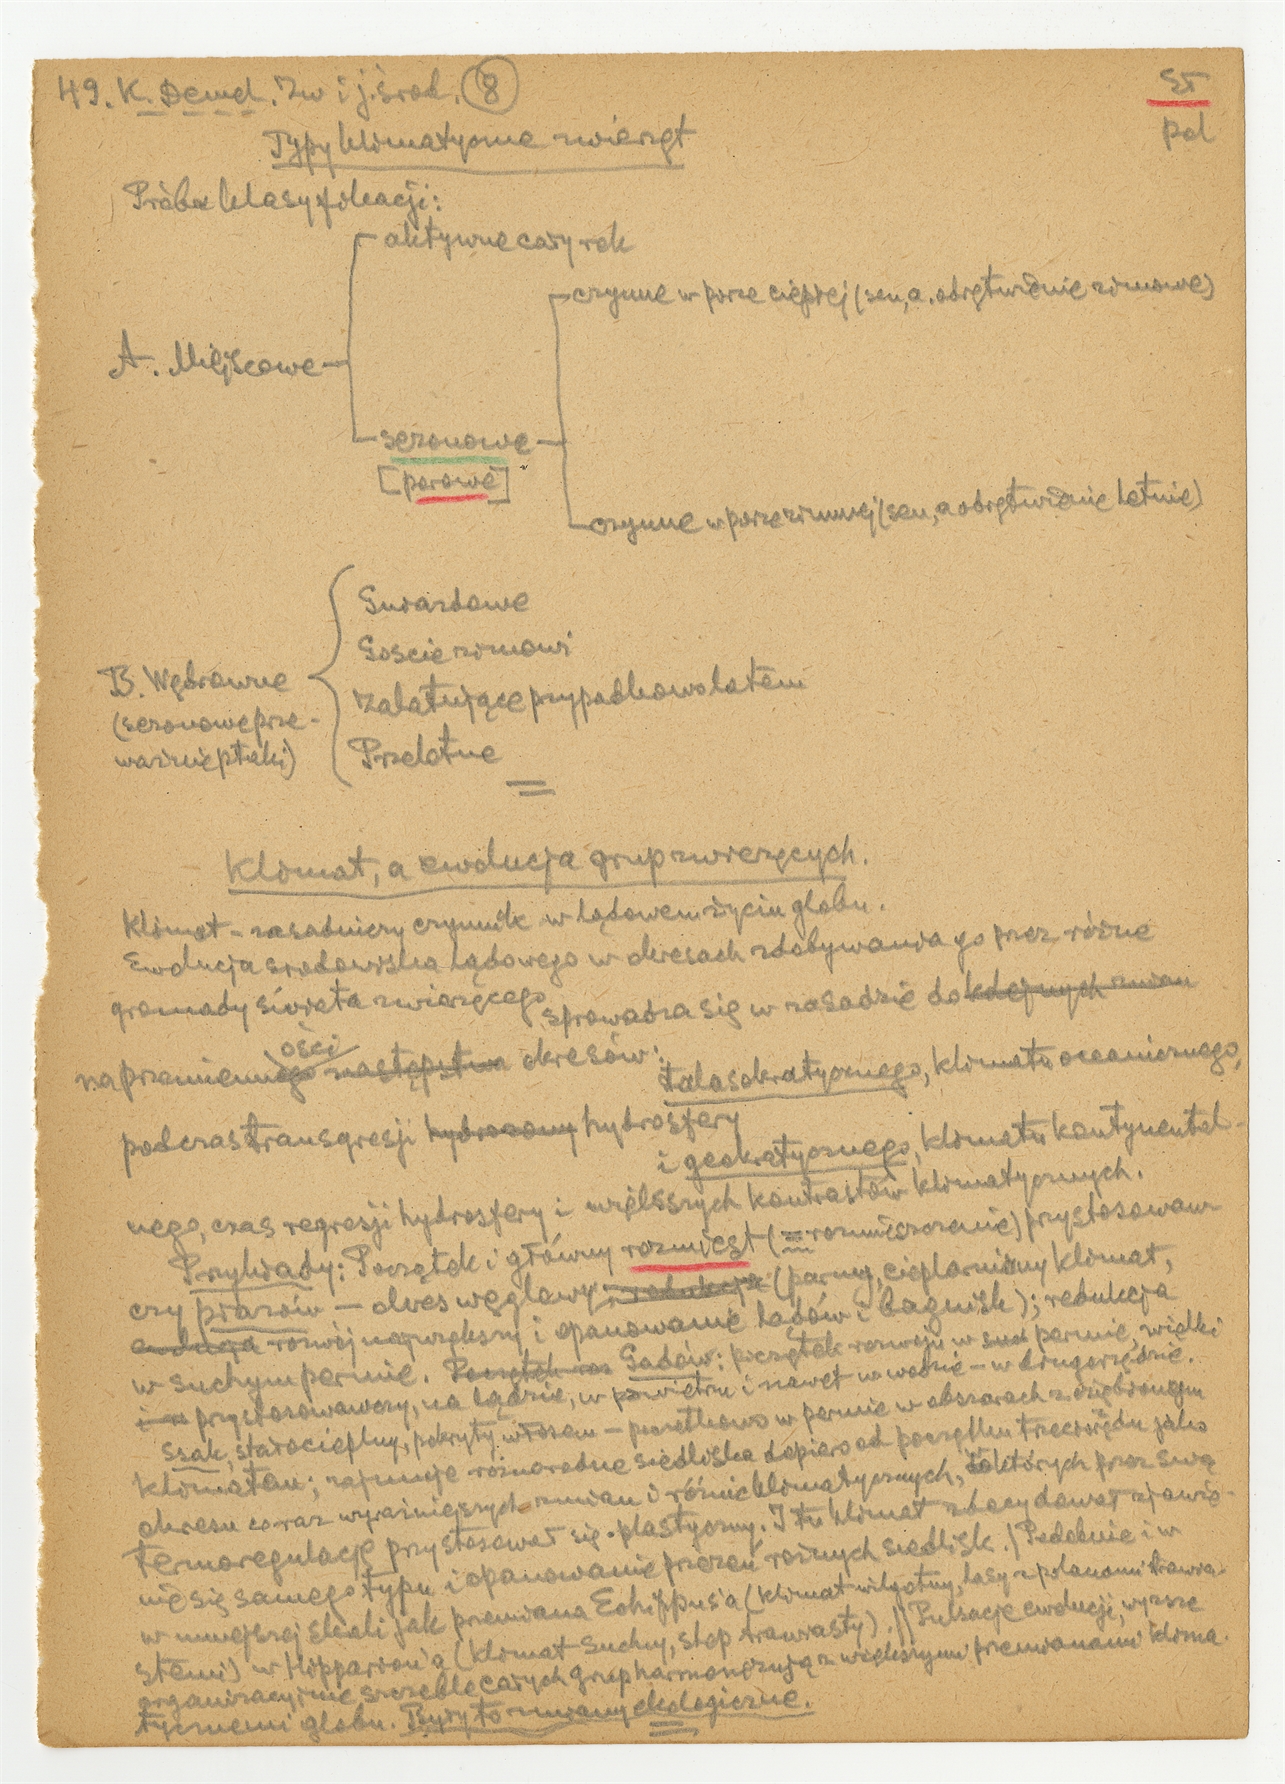 49. K. Demel. Zw i j. środ. 8
St
pol
Typy klimatyczne zwierząt
Próba klasyfikacji:
aktywne cały rok
czynne w porze ciepłej (sen, a. odrętwienie zimowe)
A. Miejscowe
sezonowe
[porowe]
czynne w porze zimnej (sen, a odrętwienie letnie)
Gniazdowe
Goście zimowi
B. Wędrowne
Zalatujące przypadkowo latem
(sezonowe prze-
ważnie ptaki)
Przelotne
Klimat, a ewolucja grup zwierzęcych.
Klimat – zasadniczy czynnik w lądowem życiu globu.
Ewolucja środowiska lądowego w okresach zdobywania go przez różne
gromady świata zwierzęcego sprowadza się w zasadzie do kolejnych zmian
naprzemiennego ości następstwa okresów:
talasokratycznego, klimatu oceanicznego,
podczas transgresji hydrosfery
i geokratycznego, klimatu kontynental-
nego, czas regresji hydrosfery i większych kontrastów klimatycznych.
Przykłady: Początek i główny rozmiest (= rozmieszczenie) przystosowaw-
czy płazów – okres węglowy, redukcja (parny, cieplarniany klimat,
ewolucja rozwój największy i opanowanie lądów i bagnisk); redukcja
w suchym permie. Początek Gadów: początek rozwoju w permie, wielki
przystosowawczy, na lądzie, w powietrzu i nawet w wodzie – w drugorzędzie.
Ssak, stałocieplny, pokryty włosem – początkowo w permie w obszarach z oziębionym
klimatem; zajmuje różnorodne siedliska dopiero od początku trzeciorzędu jako
okresu coraz wyraźniejszych zmian i różnic klimatycznych, do których przez swą
termoregulację przystosował się plastyczny. I tu klimat zdecydował zjawie-
nie się samego typu i opanowanie przezeń różnych siedlisk. / Podobnie i w
w mniejszej skali jak przemiana Eohippus'a (klimat wilgotny, lasy z polanami trawia-
stemi) w Hipparion'a (klimat suchy, step trawiasty). // Pulsacje ewolucji, wyższe
organizacyjnie szczeble całych grup harmonizują z większymi przemianami klima-
tycznemi globu. Były to zmiany ekologiczne.